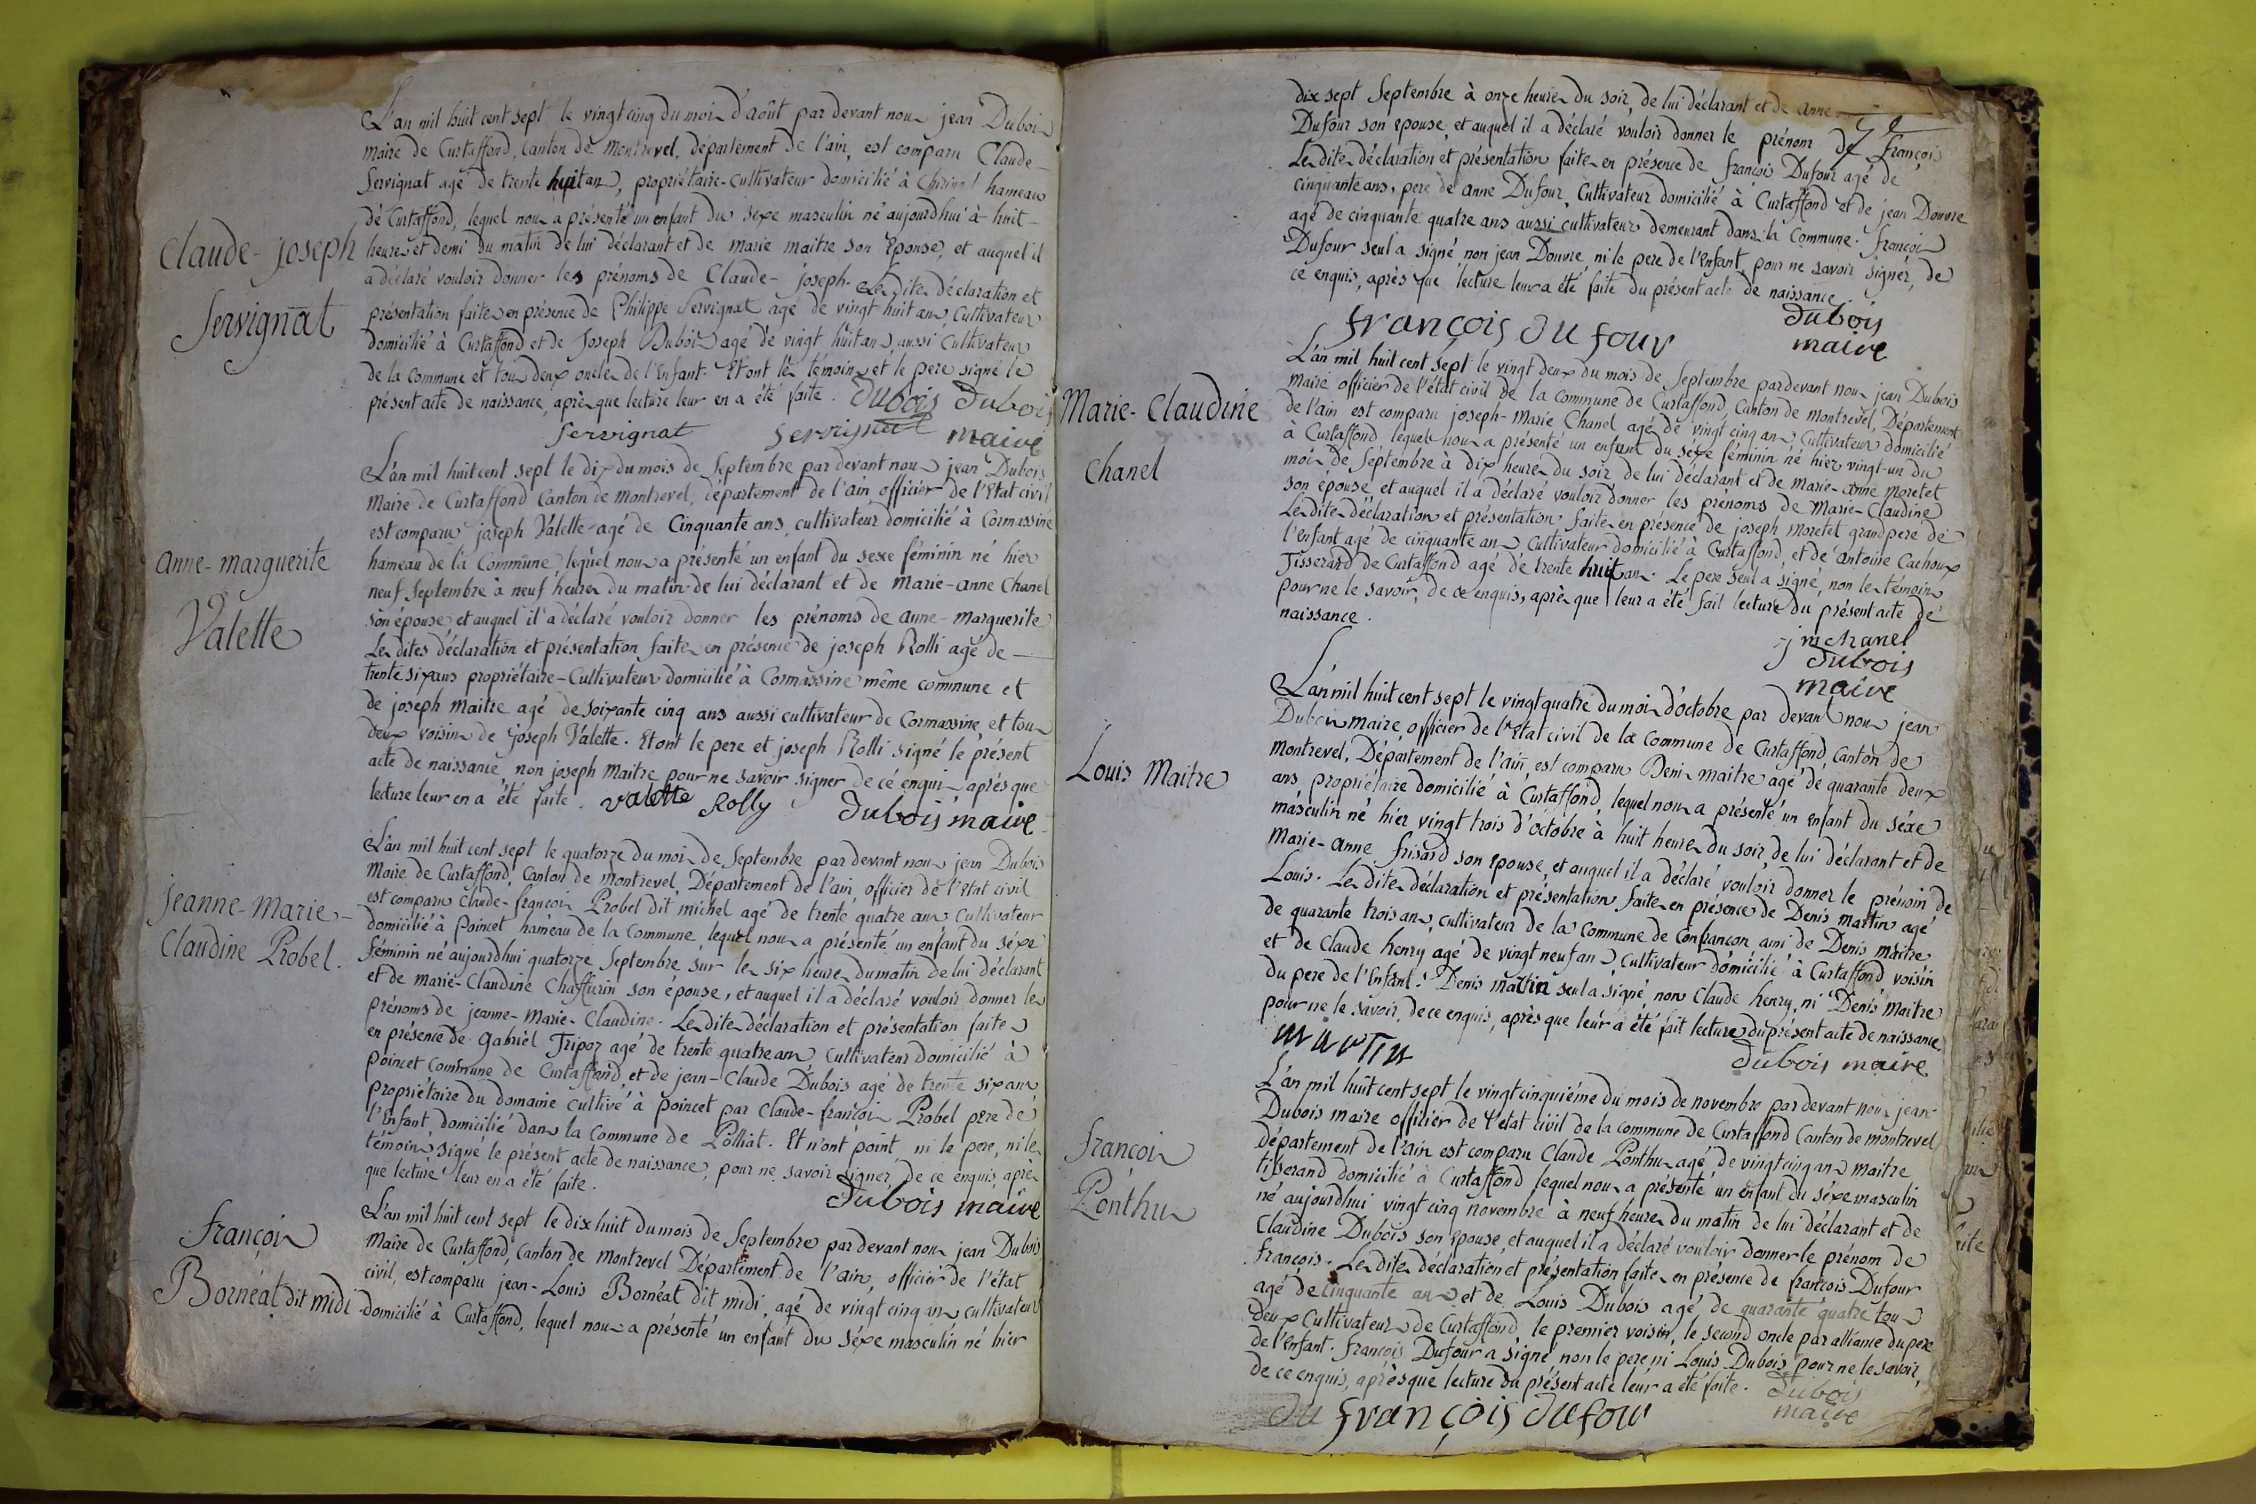 L'an mil huit cent sept le vingt cinq du mois d'août par devant nous jean Dubois
maire de Curtaffond, Canton de Montrevel, département de l'ain, est comparu Claude
Servignat agé de trente huit ans, propriétaire-cultivateur domicilié à hameau
de Curtaffond, lequel nous a présenté un enfant du sexe masculin né aujourdhui à huit
heures et demi du matin de lui déclarant et de marie maitre son Epouse, et auquel il
a déclaré vouloir donner les prénoms de Claude-joseph. Les dites déclaration et
présentation faites en présence de Philippe Servignat agé de vingt huit ans, Cultivateur
domicilié à Curtaffond et de Joseph Dubois agé de vingt huit ans, aussi Cultivateur
de la commune et tous deux oncles de l'Enfant. Et ont les témoins et le pere signé le
présent acte de naissance, après que lecture leur en a été faite. Dubois Dubois
Servignat Servignat maire
Claude-joseph
Servignat
L'an mil huit cent sept le dix du mois de Septembre par devant nous jean Dubois
Maire de Curtaffond Canton de montrevel, département de l'ain officier de l'Etat civil
est comparu joseph Valette agé de Cinquante ans, cultivateur domicilié à Cormassine
hameau de la Commune, lequel nous a présenté un enfant du sexe féminin né hier
neuf Septembre à neuf heures du matin de lui déclarant et de Marie-anne Chanel
son épouse et auquel il a déclaré vouloir donner les prénoms de anne-marguerite
Les dites déclaration et présentation faites en présence de joseph Rolli agé de
trente six ans propriétaire-Cultivateur domicilié à Cormassine même commune et
de joseph maitre agé de soixante cinq ans aussi cultivateur de Cormassine et tous
deux voisins de joseph Valette. Et ont le pere et joseph Rolli signé le présent
acte de naissance, non joseph maitre pour ne savoir signer de ce enquis après que
lecture leur en a été faite. valette Rolly Dubois maire
anne-marguerite
Valette
L'an mil huit cent sept le quatorze du mois de Septembre par devant nous jean Dubois
Maire de Curtaffond, Canton de montrevel, Département de l'ain, officier de l'Etat civil
est comparu claude-françois Probel dit michel agé de trente quatre ans Cultivateur
domicilié à Poincet hameau de la Commune, lequel nous a présenté un enfant du séxe
féminin né aujourdhui quatorze Septembre sur les six heures du matin de lui déclarant
et de marie-Claudine Chaffurin son épouse, et auquel il a déclaré vouloir donner les
prénoms de jeanne-Marie-Claudine. Les dites déclaration et présentation faites
en présence de gabriel Tripoz agé de trente quatre ans Cultivateur domicilié à
Poincet commune de Curtaffond et de jean-Claude Dubois agé de trente six ans
propriétaire du domaine cultivé à poincet par claude-françois Probel pere de
l'Enfant domicilié dans la Commune de Polliat. Et n'ont point ni le pere, ni les
témoins signé le présent acte de naissance, pour ne savoir signer, de ce enquis, après
que lecture leur en a été faite.
Dubois maire
jeanne-Marie-
Claudine Probel.
L'an mil huit cent sept le dix huit du mois de Septembre par devant nous jean Dubois
Maire de Curtaffond, Canton de montrevel Département de l'ain, officier de l'état
civil, est comparu jean-Louis Bornéat dit midi, agé de vingt cinq ans cultivateur
domicilié à Curtaffond, lequel nous a présenté un enfant du séxe masculin né hier
françois
Bornéat dit midi
dix sept Septembre à onze heures du soir, de lui déclarant et de anne
Dufour son épouse, et auquel il a déclaré vouloir donner le prénom de françois
Les dites déclaration et présentation faites en présence de françois Dufour agé de
cinquante ans, pere de anne Dufour, Cultivateur domicilié à Curtaffond et de jean Douvre
agé de cinquante quatre ans aussi cultivateur demeurant dans la Commune. françois
Dufour seul a signé non jean Douvre ni le pere de l'Enfant, pour ne savoir signer, de
ce enquis, après que lecture leur a été faite du présent acte de naissance.
françois Dufour Dubois
maire
L'an mil huit cent sept le vingt deux du mois de Septembre par devant nous jean Dubois
Maire officier de l'état civil de la Commune de Curtaffond Canton de montrevel, Département
de l'ain est comparu joseph-Marie Chanel agé de vingt cinq ans Cultivateur domicilié
à Curtaffond lequel nous a présenté un enfant du séxe féminin né hier vingt-un du
mois de Septembre à dix heures du soir de lui déclarant et de marie-anne moretet
son épouse, et auquel il a déclaré vouloir donner les prénoms de marie-Claudine
Les dites déclaration et présentation faites en présence de joseph moretet grand pere de
l'enfant, agé de cinquante ans Cultivateur domicilié à Curtaffond, et de antoine Cachoux
Tisserand de Curtaffond agé de trente huit ans. Le pere seul a signé, non les témoins
pour ne le savoir, de ce enquis, après que leur a été fait lecture du présent acte de
naissance.
j m chanel
Dubois
maire
Marie-Claudine
Chanel
L'an mil huit cent sept le vingt quatre du mois d'octobre par devant nous jean
Dubois maire, officier de l'Etat civil de la commune de Curtaffond, Canton de
montrevel, Département de l'ain, est comparu Denis maitre agé de quarante deux
ans propriétaire domicilié à Curtaffond, lequel nous a présenté un enfant du séxe
masculin né hier vingt trois d'octobre à huit heures du soir, de lui déclarant et de
Marie-anne frisard son epouse, et auquel il a déclaré vouloir donner le prénom de
Louis. Les dites déclaration et présentation faites en présence de Denis martin agé
de quarante trois ans, cultivateur de la commune de Confrançon, ami de Denis maitre
et de Claude henry agé de vingt neuf ans, Cultivateur domicilié à Curtaffond, voisin
du pere de l'Enfant. Denis martin seul a signé, non Claude henry, ni Denis maitre
pour ne le savoir, de ce enquis, après que leur a été fait lecture du présent acte de naissance.
martin Dubois maire
Louis Maitre
L'an mil huit cent sept le vingt cinquième du mois de novembre par devant nous jean
Dubois maire officier de l'etat civil de la commune de Curtaffond Canton de montrevel
département de l'ain est comparu Claude Ponthus agé de vingt cinq ans maitre
tisserand domicilié à Curtaffond lequel nous a présenté un enfant du séxe masculin
né aujourdhui vingt cinq novembre à neuf heures du matin de lui déclarant et de
Claudine Dubois son epouse, et auquel il a déclaré vouloir donner le prénom de
françois. Les dites déclaration et présentation faites en présence de françois Dufour
agé de cinquante ans et de Louis Dubois agé de quarante quatre tous
deux Cultivateurs de Curtaffond le premier voisin, le second oncle par alliance du pere
de l'Enfant. françois Dufour a signé, non le pere, ni Louis Dubois pour ne le savoir,
de ce enquis, après que lecture du présent acte leur a été faite. Dubois
maire
Du françois dufour
françois
Ponthus